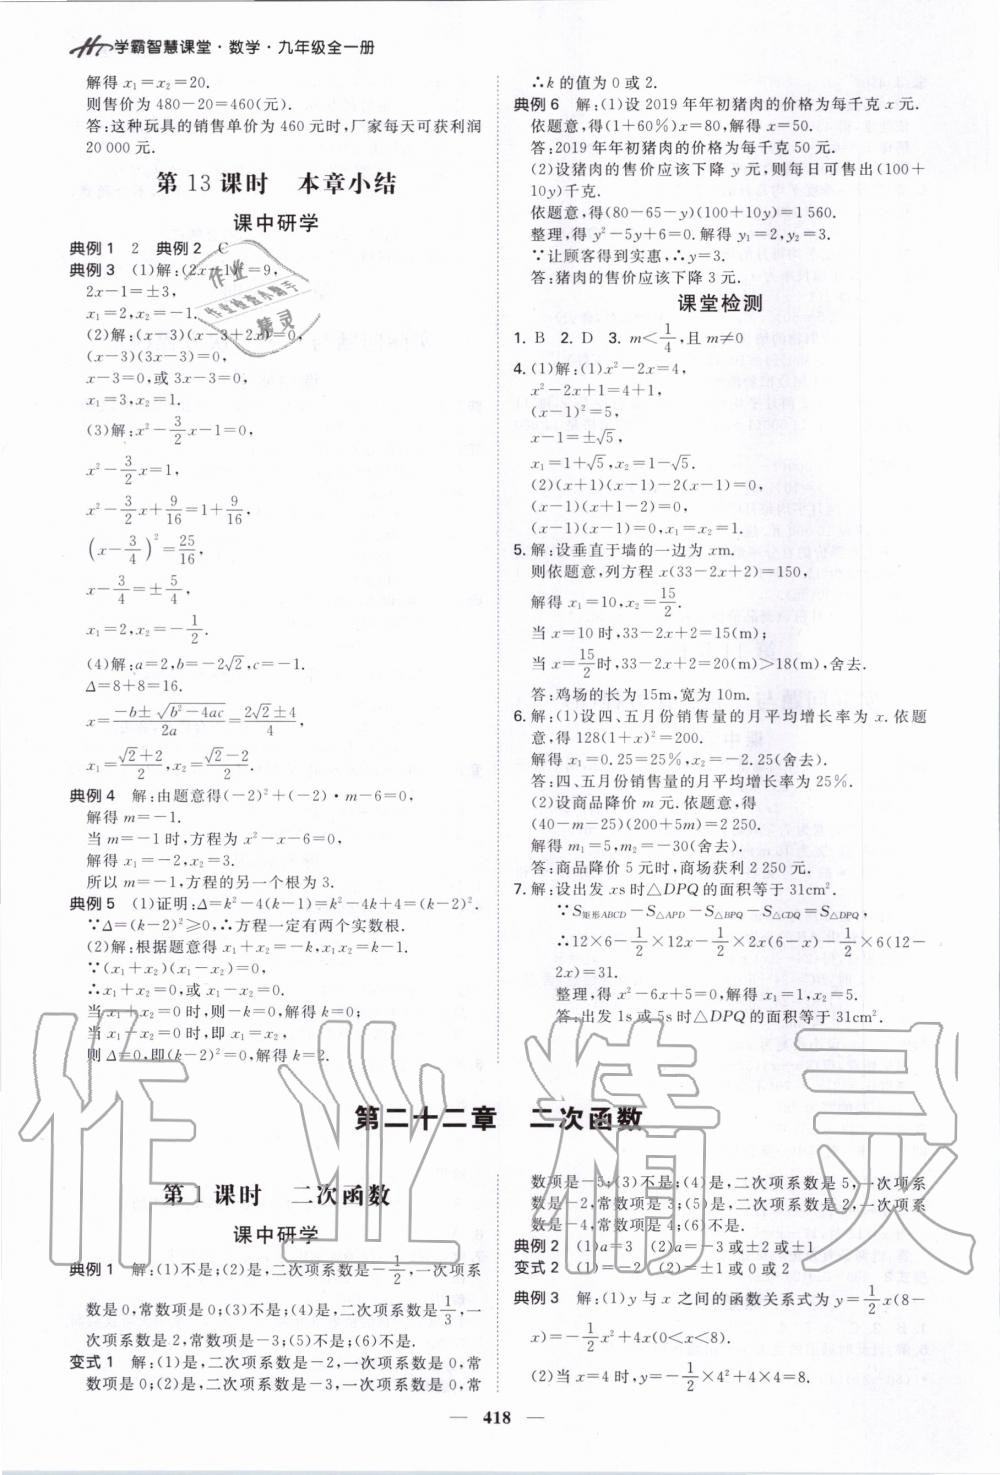 学霸智慧课堂·数学·九年级全一册
解得 x₁=x₂=20.
则售价为 480-20=460(元).
答:这种玩具的销售单价为 460 元时,厂家每天可获利润
20 000 元.
第 13 课时　本章小结
课中研学
典例 1　2　典例 2　C
典例 3　(1)解:(2x-1)²=9,
2x-1=±3,
x₁=2,x₂=-1.
(2)解:(x-3)(x-3+2x)=0,
(x-3)(3x-3)=0,
x-3=0,或 3x-3=0,
x₁=3,x₂=1.
(3)解:x²-3/2x-1=0,
x²-3/2x=1,
x²-3/2x+9/16=1+9/16,
(x-3/4)²=25/16,
x-3/4=±5/4,
x₁=2,x₂=-1/2.
(4)解:a=2,b=-2√2,c=-1.
Δ=8+8=16.
x=(-b±√(b²-4ac))/2a=(2√2±4)/4,
x₁=(√2+2)/2,x₂=(√2-2)/2.
典例 4　解:由题意得(-2)²+(-2)·m-6=0,
解得 m=-1.
当 m=-1 时,方程为 x²-x-6=0,
解得 x₁=-2,x₂=3.
所以 m=-1,方程的另一个根为 3.
典例 5　(1)证明:Δ=k²-4(k-1)=k²-4k+4=(k-2)².
∵Δ=(k-2)²≥0,∴方程一定有两个实数根.
(2)解:根据题意得 x₁+x₂=-k,x₁x₂=k-1.
∵(x₁+x₂)(x₁-x₂)=0,
∴x₁+x₂=0,或 x₁-x₂=0.
当 x₁+x₂=0 时,则-k=0,解得 k=0;
当 x₁-x₂=0 时,即 x₁=x₂,
则 Δ=0,即(k-2)²=0,解得 k=2.
∴k 的值为 0 或 2.
典例 6　解:(1)设 2019 年年初猪肉的价格为每千克 x 元.
依题意,得(1+60%)x=80,解得 x=50.
答:2019 年年初猪肉的价格为每千克 50 元.
(2)设猪肉的售价应该下降 y 元,则每日可售出(100+
10y)千克.
依题意,得(80-65-y)(100+10y)=1 560.
整理,得 y²-5y+6=0.解得 y₁=2,y₂=3.
∵让顾客得到实惠,∴y=3.
答:猪肉的售价应该下降 3 元.
课堂检测
1. B　2. D　3. m<1/4,且 m≠0
4.(1)解:(1)x²-2x=4,
x²-2x+1=4+1,
(x-1)²=5,
x-1=±√5,
x₁=1+√5,x₂=1-√5.
(2)(x+1)(x-1)-2(x-1)=0,
(x-1)(x+1-2)=0,
(x-1)(x-1)=0,x₁=x₂=1.
5. 解:设垂直于墙的一边为 xm.
则依题意,列方程 x(33-2x+2)=150,
解得 x₁=10,x₂=15/2.
当 x=10 时,33-2x+2=15(m);
当 x=15/2时,33-2x+2=20(m)>18(m),舍去.
答:鸡场的长为 15m,宽为 10m.
6. 解:(1)设四、五月份销售量的月平均增长率为 x.依题
意,得 128(1+x)²=200.
解得 x₁=0.25=25%,x₂=-2.25(舍去).
答:四、五月份销售量的月平均增长率为 25%.
(2)设商品降价 m 元.依题意,得
(40-m-25)(200+5m)=2 250.
解得 m₁=5,m₂=-30(舍去).
答:商品降价 5 元时,商场获利 2 250 元.
7. 解:设出发 xs 时△DPQ 的面积等于 31cm².
∵S矩形ABCD-S△APD-S△BPQ-S△CDQ=S△DPQ,
∴12×6-1/2×12x-1/2×2x(6-x)-1/2×6(12-
2x)=31.
整理,得 x²-6x+5=0,解得 x₁=1,x₂=5.
答:出发 1s 或 5s 时△DPQ 的面积等于 31cm².
第二十二章　二次函数
第 1 课时　二次函数
课中研学
典例 1　解:(1)不是;(2)是,二次项系数是-1/2,一次项系
数是 0,常数项是 0;(3)不是;(4)是,二次项系数是1/3,一
次项系数是 2,常数项是-3;(5)不是;(6)不是.
变式 1　解:(1)是,二次项系数是-2,一次项系数是 0,常
数项是 0;(2)是,二次项系数是-3,一次项系数是 0,常
数项是-5;(3)不是;(4)是,二次项系数是 5,一次项系
数是-2,常数项是 3;(5)是,二次项系数是 2,一次项系
数是-4,常数项是 4;(6)不是.
典例 2　(1)a=3　(2)a=-3 或±2 或±1
变式 2　(1)=-2　(2)=±1 或 0 或 2
典例 3　解:(1)y 与 x 之间的函数关系式为 y=1/2x(8-
x)=-1/2x²+4x(0<x<8).
(2)当 x=4 时,y=-1/2×4²+4×4=8.
— 418 —
作业
作业检查小助手
精灵
作业精灵